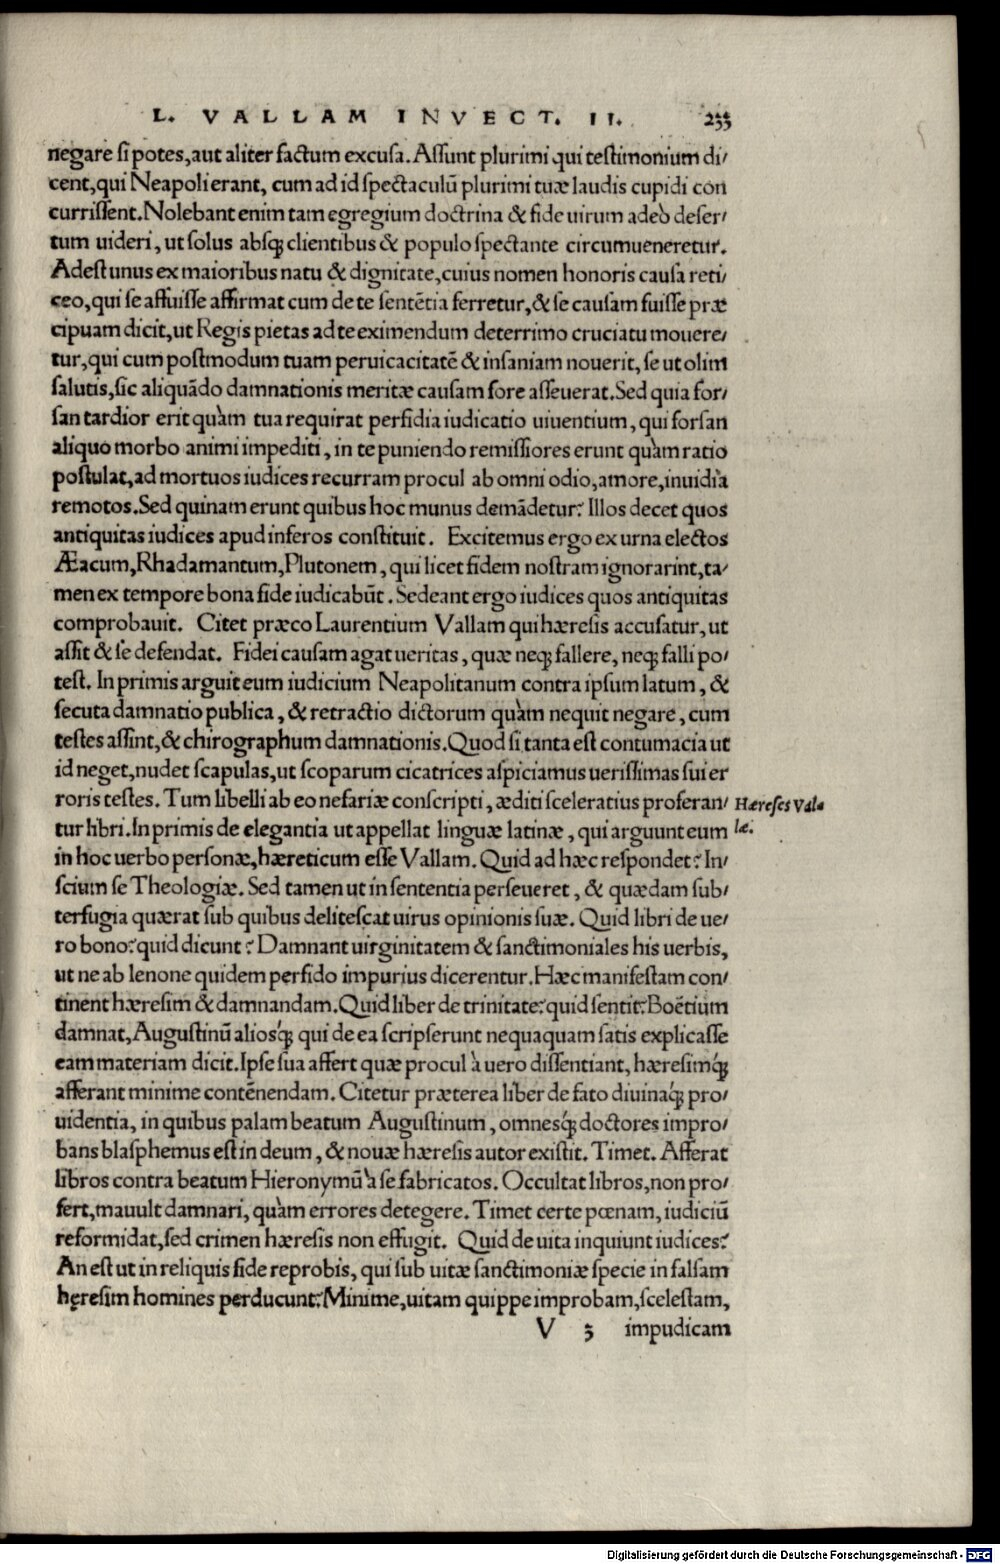 L. VALLAM INVECT. II. 233
negare si potes, aut aliter factum excusa. Assunt plurimi qui testimonium di/
cent, qui Neapoli erant, cum ad id spectaculũ plurimi tuæ laudis cupidi con
currissent. Nolebant enim tam egregium doctrina & fide uirum adeò deser/
tum uideri, ut solus absq; clientibus & populo spectante circumueneretur.
Adest unus ex maioribus natu & dignitate, cuius nomen honoris causa reti/
ceo, qui se affuisse affirmat cum de te sentẽtia ferretur, & se causam fuisse præ
cipuam dicit, ut Regis pietas ad te eximendum deterrimo cruciatu mouere/
tur, qui cum postmodum tuam peruicacitatẽ & insaniam nouerit, se ut olim
salutis, sic aliquãdo damnationis meritæ causam fore asseuerat. Sed quia for/
san tardior erit quàm tua requirat perfidia iudicatio uiuentium, qui forsan
aliquo morbo animi impediti, in te puniendo remissiores erunt quàm ratio
postulat, ad mortuos iudices recurram procul ab omni odio, amore, inuidia
remotos. Sed quinam erunt quibus hoc munus demãdetur? Illos decet quos
antiquitas iudices apud inferos constituit. Excitemus ergo ex urna electos
Æacum, Rhadamantum, Plutonem, qui licet fidem nostram ignorarint, ta/
men ex tempore bona fide iudicabũt. Sedeant ergo iudices quos antiquitas
comprobauit. Citet præco Laurentium Vallam qui hæresis accusatur, ut
assit & se defendat. Fidei causam agat ueritas, quæ neq; fallere, neq; falli po/
test. In primis arguit eum iudicium Neapolitanum contra ipsum latum, &
secuta damnatio publica, & retractio dictorum quàm nequit negare, cum
testes assint, & chirographum damnationis. Quod si tanta est contumacia ut
id neget, nudet scapulas, ut scoparum cicatrices aspiciamus uerissimas sui er
roris testes. Tum libelli ab eo nefariæ conscripti, æditi sceleratius proferan/
Hæreses Val⸗
læ.
tur libri. In primis de elegantia ut appellat linguæ latinæ, qui arguunt eum
in hoc uerbo personæ, hæreticum esse Vallam. Quid ad hæc respondet? In/
scium se Theologiæ. Sed tamen ut in sententia perseueret, & quædam sub/
terfugia quærat sub quibus delitescat uirus opinionis suæ. Quid libri de ue/
ro bono? quid dicunt? Damnant uirginitatem & sanctimoniales his uerbis,
ut ne ab lenone quidem perfido impurius dicerentur. Hæc manifestam con/
tinent hæresim & damnandam. Quid liber de trinitate? quid sentit? Boẽtium
damnat, Augustinũ aliosq́; qui de ea scripserunt nequaquam satis explicasse
eam materiam dicit. Ipse sua affert quæ procul à uero dissentiant, hæresimq́;
afferant minime contẽnendam. Citetur præterea liber de fato diuinaq́; pro/
uidentia, in quibus palam beatum Augustinum, omnesq́; doctores impro/
bans blasphemus est in deum, & nouæ hæresis autor existit. Timet. Afferat
libros contra beatum Hieronymũ à se fabricatos. Occultat libros, non pro/
fert, mauult damnari, quàm errores detegere. Timet certe pœnam, iudiciũ
reformidat, sed crimen hæresis non effugit. Quid de uita inquiunt iudices?
An est ut in reliquis fide reprobis, qui sub uitæ sanctimoniæ specie in falsam
hęresim homines perducunt? Minime, uitam quippe improbam, scelestam,
V 3 impudicam
Digitalisierung gefördert durch die Deutsche Forschungsgemeinschaft - DFG